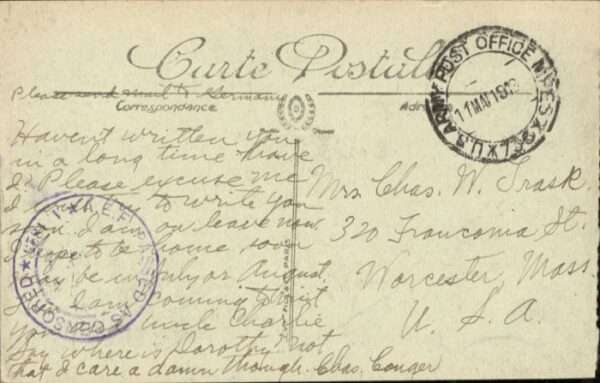 Carte Postale
Please send mail to Germany
Correspondance
Adre
U.S. ARMY POST OFFICE M.P.E.S. 
11 MAI 1919
Havent written you
in a long time have
I? Please excuse me
I to write you
soon. I am on leave now.
hope to be home soon
be in July or August
I am coming to visit
you uncle Charlie
Say where is Dorothy? not
that I care a damn though. Chas. Conger
Mrs. Chas. W. Trask.
320 Franconia St.
Worcester, Mass.
U. S. A.
A.E.F. PASSED AS CENSORED